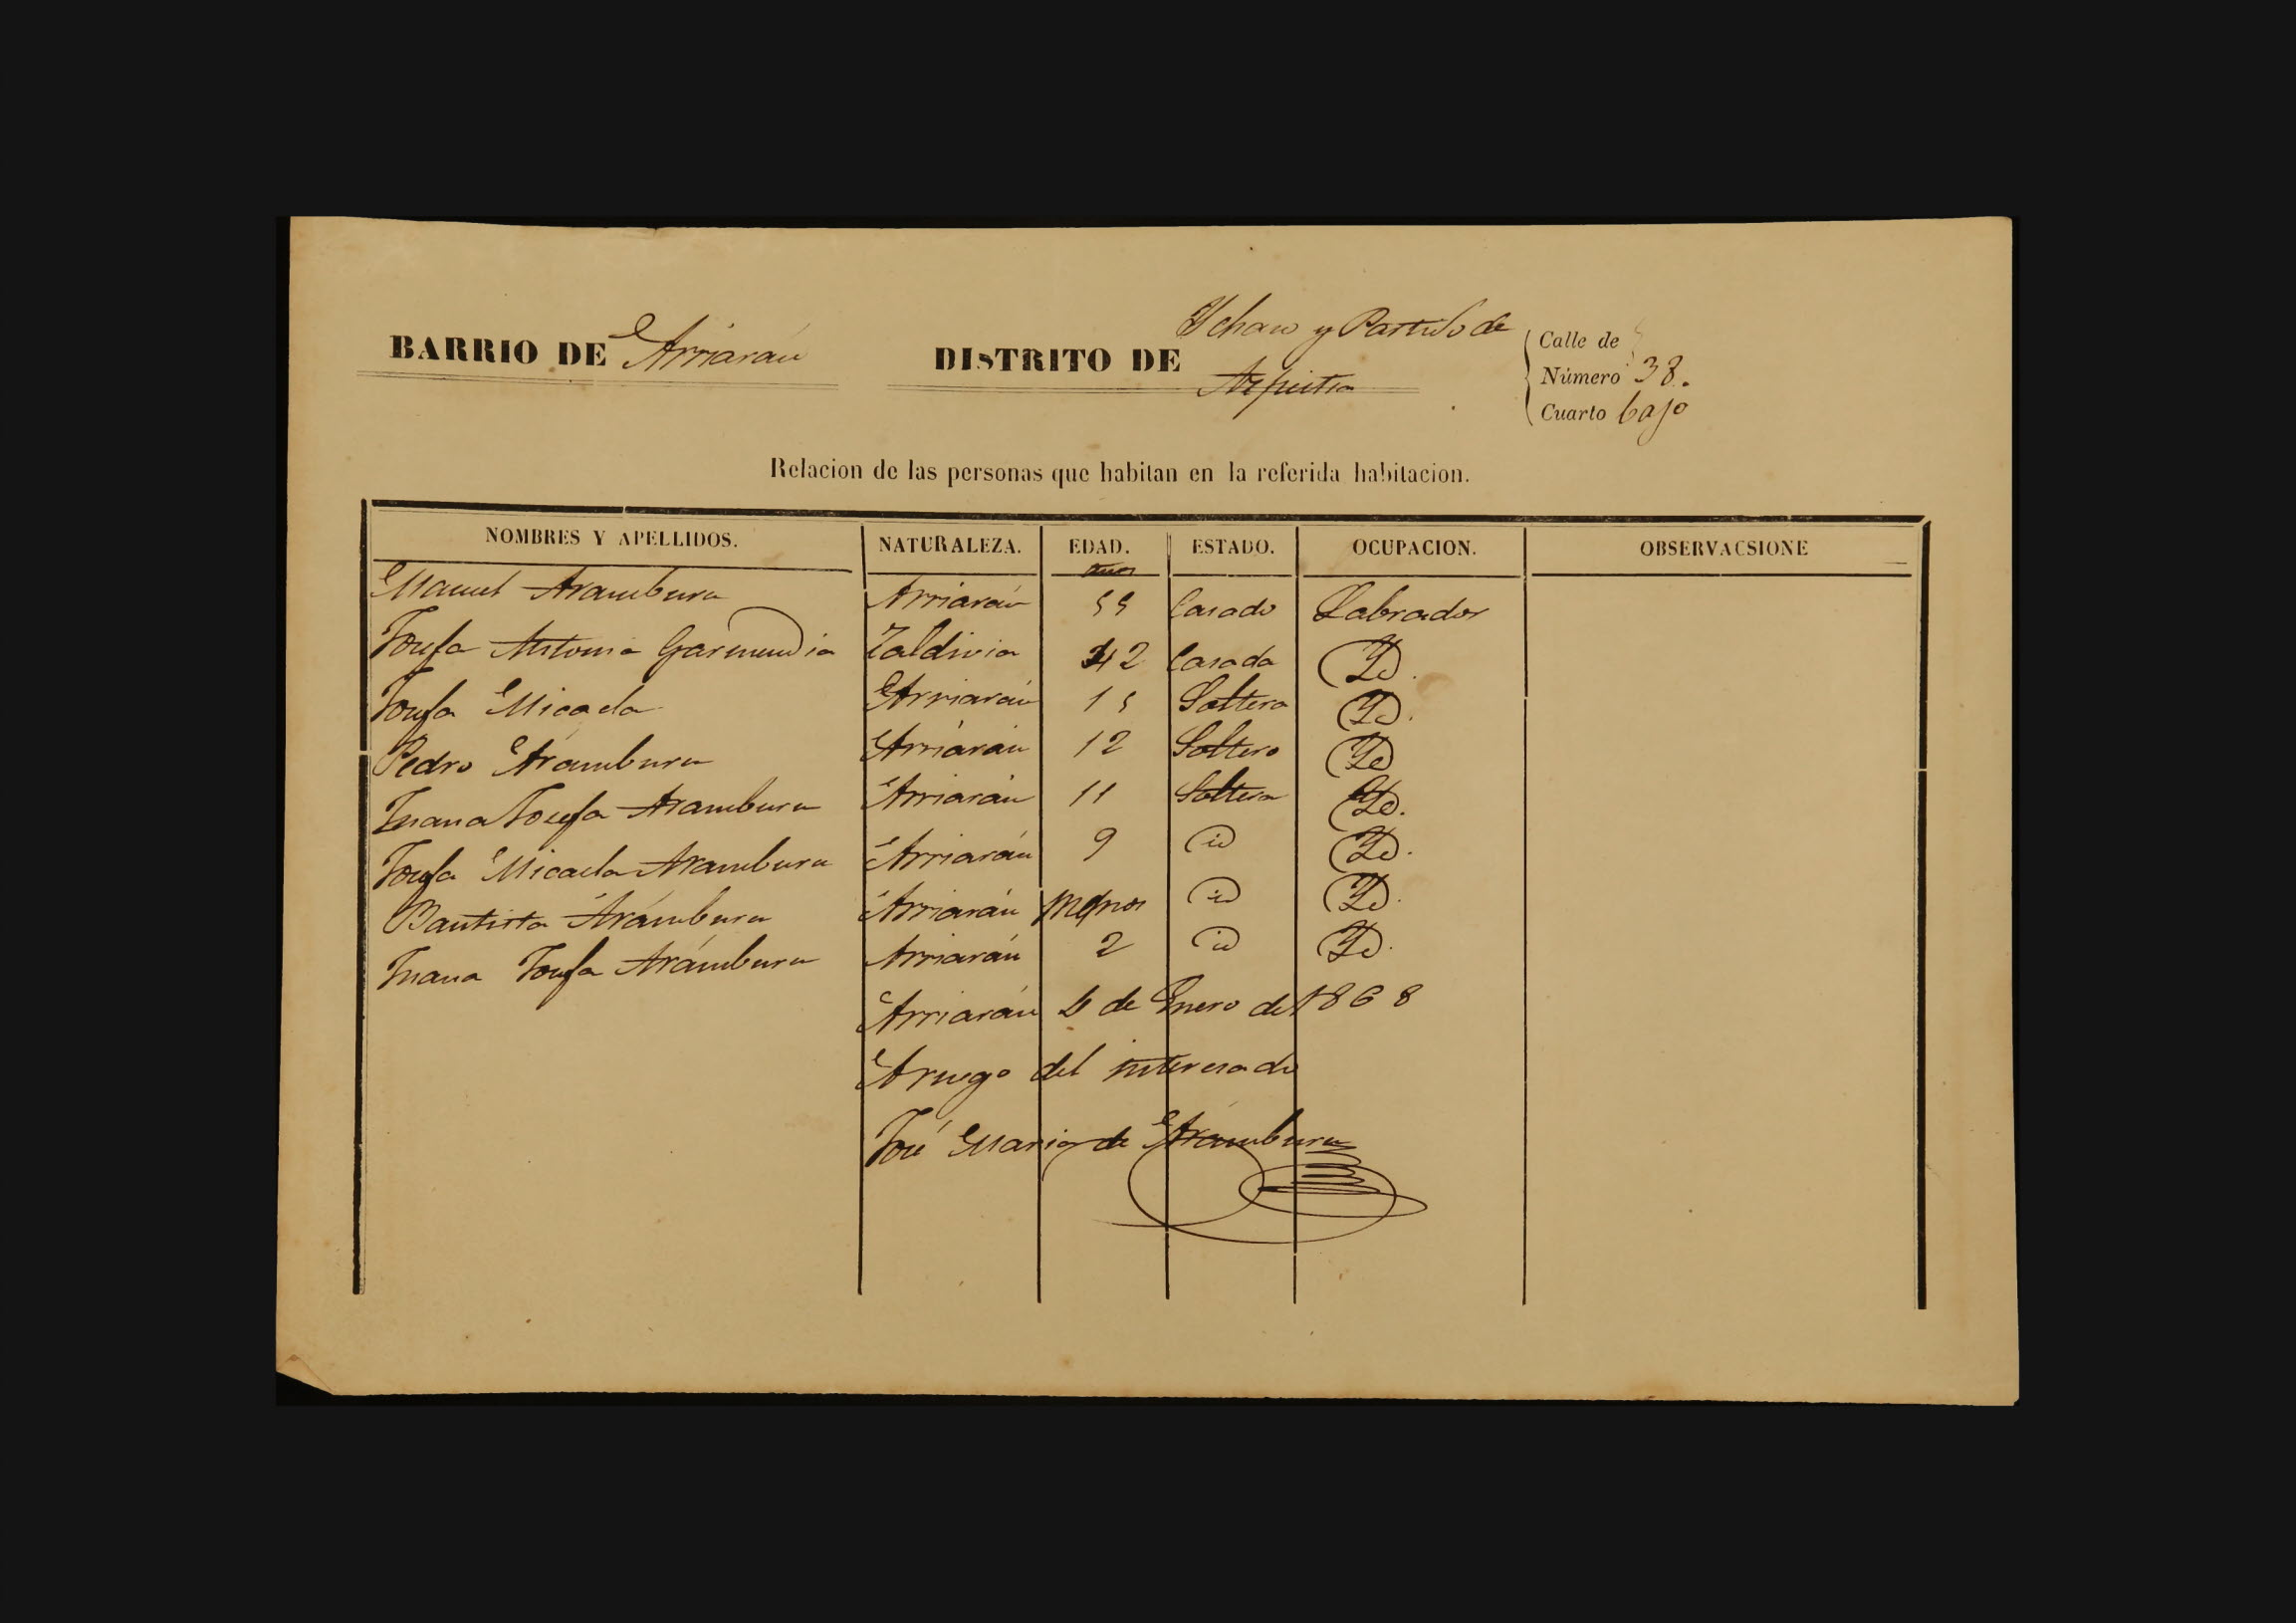 BARRIO DE Arriarán DISTRITO DE Ychaso y Partido de
Azpeitia
Calle de
Número 38.
Cuarto bajo
Relacion de las personas que habitan en la referida habitacion.
NOMBRES Y APELLIDOS. NATURALEZA. EDAD. ESTADO. OCUPACION. OBSERVACSIONE
años
Manuel Aramburu Arriarán 55 Casado Labrador
Josefa Antonia Garmendia Zaldivia 42 Casada Yd.
Josefa Micaela Arriarán 15 Soltera Yd.
Pedro Aramburu Arriarán 12 Soltero Yd
Juana Josefa Aramburu Arriarán 11 Soltera Yd.
Josefa Micaela Aramburu Arriarán 9 id Yd.
Bautista Arámburu Arriarán id Yd.
Juana Josefa Arámburu Arriarán 2 id Yd.
Arriarán de Enero de 1868
A ruego del interesado
José Maria de Aramburu